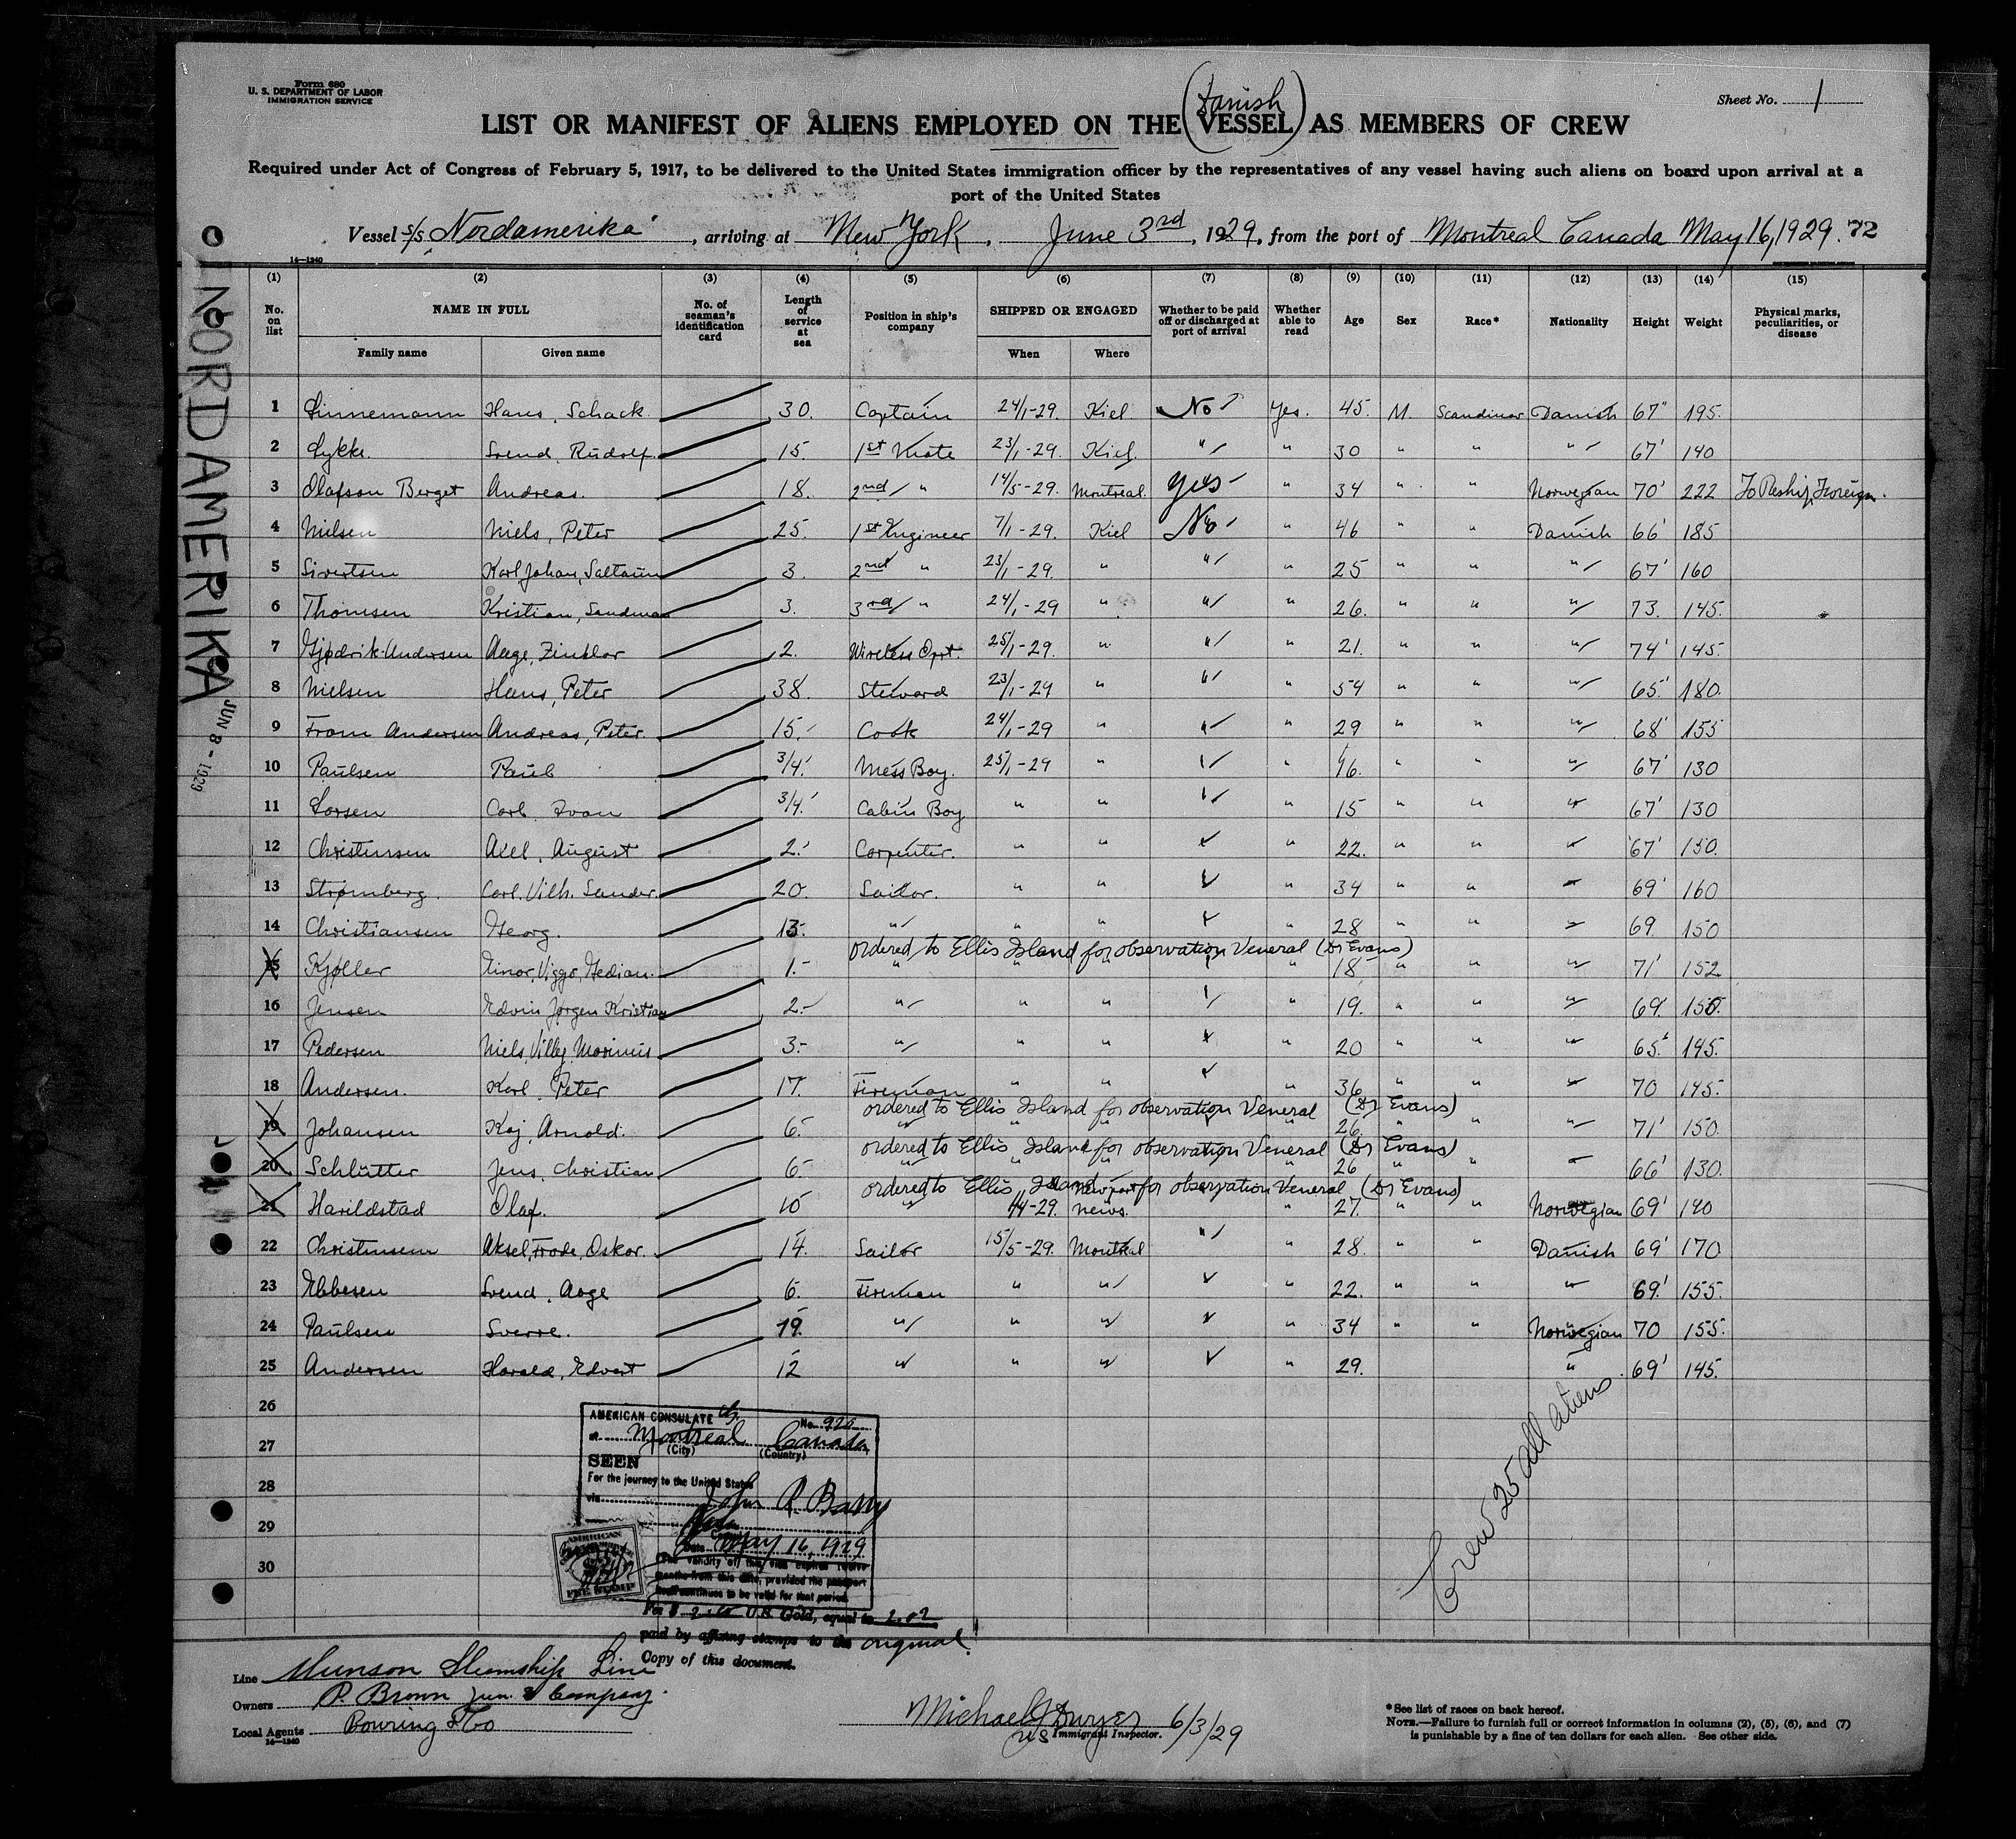 Form 680
U. S. DEPARTMENT OF LABOR
IMMIGRATION SERVICE
Sheet No. 1
(Danish)
LIST OR MANIFEST OF ALIENS EMPLOYED ON THE VESSEL AS MEMBERS OF CREW
Required under Act of Congress of February 5, 1917, to be delivered to the United States immigration officer by the representatives of any vessel having such aliens on board upon arrival at a
port of the United States
Vessel S/S "Nordamerika", arriving at New York, June 3rd, 1929, from the port of Montreal Canada May 16, 1929. 72
14—1240
(1) (2) (3) (4) (5) (6) (7) (8) (9) (10) (11) (12) (13) (14) (15)
No. on list NAME IN FULL Family name Given name No. of seaman's identification card Length of service at sea Position in ship's company SHIPPED OR ENGAGED When Where Whether to be paid off or discharged at port of arrival Whether able to read Age Sex Race* Nationality Height Weight Physical marks, peculiarities, or disease
1 Linnemann Hans, Schack. 30. Captain 24/1-29. Kiel. No Yes. 45. M. Scandinav Danish 67" 195.
2 Lykke. Svend, Rudolf. 15. 1st Mate 23/1-29. Kiel. " " 30 " " " 67' 140
3 Olafson Berget Andreas. 18. 2nd " 14/5-29. Montreal. Yes " 34 " " Norwegian 70' 222 To Reship Foreign.
4 Nielsen Niels, Peter 25. 1st Engineer 7/1-29. Kiel No " 46 " " Danish 66' 185
5 Sivertsen Karl, Johan, Saltaum 3. 2nd " 23/1-29. " " " 25 " " " 67' 160
6 Thomsen Kristian, Sandman 3. 3rd " 24/1-29 " " " 26. " " " 73. 145.
7 Gjødrik-Andersen Aage, Zinklar 2. Wireless Oprt. 25/1-29. " " " 21. " " " 74' 145.
8 Nielsen Hans, Peter 38. Steward 23/1-29 " " " 54 " " " 65.' 180.
9 From Andersen Andreas, Peter. 15. Cook 24/1-29 " " " 29 " " " 68' 155
10 Paulsen Paul 3/4. Mess Boy. 25/1-29 " " " 16. " " " 67' 130
11 Larsen Carl Ivan 3/4. Cabin Boy " " " " 15 " " " 67' 130
12 Christensen Axel, August 2. Carpenter. " " " " 22. " " " 67' 150.
13 Strømberg. Carl. Vilh. Sander. 20. Sailor. " " " " 34 " " " 69' 160
14 Christiansen Georg. 13. " " " " " 28 " " " 69. 150
ordered to Ellis Island for observation Veneral (Dr Evans)
15 Kjøller Einar, Viggo, Gedian. 1. " " " " " 18 " " " 71' 152
16 Jensen Edvin Jørgen Kristian 2. " " " " " 19. " " " 69. 150.
17 Pedersen Niels, Villy, Marinus 3. " " " " " 20 " " " 65.' 145.
18 Andersen. Karl, Peter 17. Fireman " " " " 36 " " " 70 145.
ordered to Ellis Island for observation Veneral (Dr Evans)
19 Johansen Kaj, Arnold. 6. " " " " " 26. " " " 71' 150.
ordered to Ellis Island for observation Veneral (Dr Evans)
20 Schlütter Jens, Christian 6. " " " " " 26 " " " 66' 130.
ordered to Ellis Island for observation Veneral (Dr Evans)
21 Harildstad Olaf. 10 " 4-29. Newport News. " " 27. " " Norwegian 69' 140
22 Christensen Aksel, Frode, Oskar. 14. Sailor 15/5-29. Montreal " " 28. " " Danish 69' 170
23 Ebbesen Svend, Aage 6. Fireman " " " " 22. " " " 69.' 155.
24 Paulsen Sverre. 19. " " " " " 34 " " Norwegian 70 155.
25 Andersen Harald, Edvart 12 " " " " " 29. " 69' 145.
26
27
28
29
30
Crew 25 all aliens
NORDAMERIKA
JUN 8 - 1929
AMERICAN CONSULATE No. 920
at Montreal Canada
(City) (Country)
SEEN
For the journey to the United States
via
John R. Barry
Date May 16, 1929
(The validity of this visa expires twelve
months from this date, provided the passport
continues to be valid for that period.
AMERICAN
FEE STAMP
Fee $ 2.00 U.S. Gold, equal to 2.02
paid by affixing stamps to the original
Copy of this document.
Line Munson Steamship Line
Owners P. Brown Jun. & Company.
Local Agents Bowring & Co
14—1240
Michael J Dwyer 6/3/29
US Immigrant Inspector.
*See list of races on back hereof.
NOTE.—Failure to furnish full or correct information in columns (2), (5), (6), and (7)
is punishable by a fine of ten dollars for each alien. See other side.